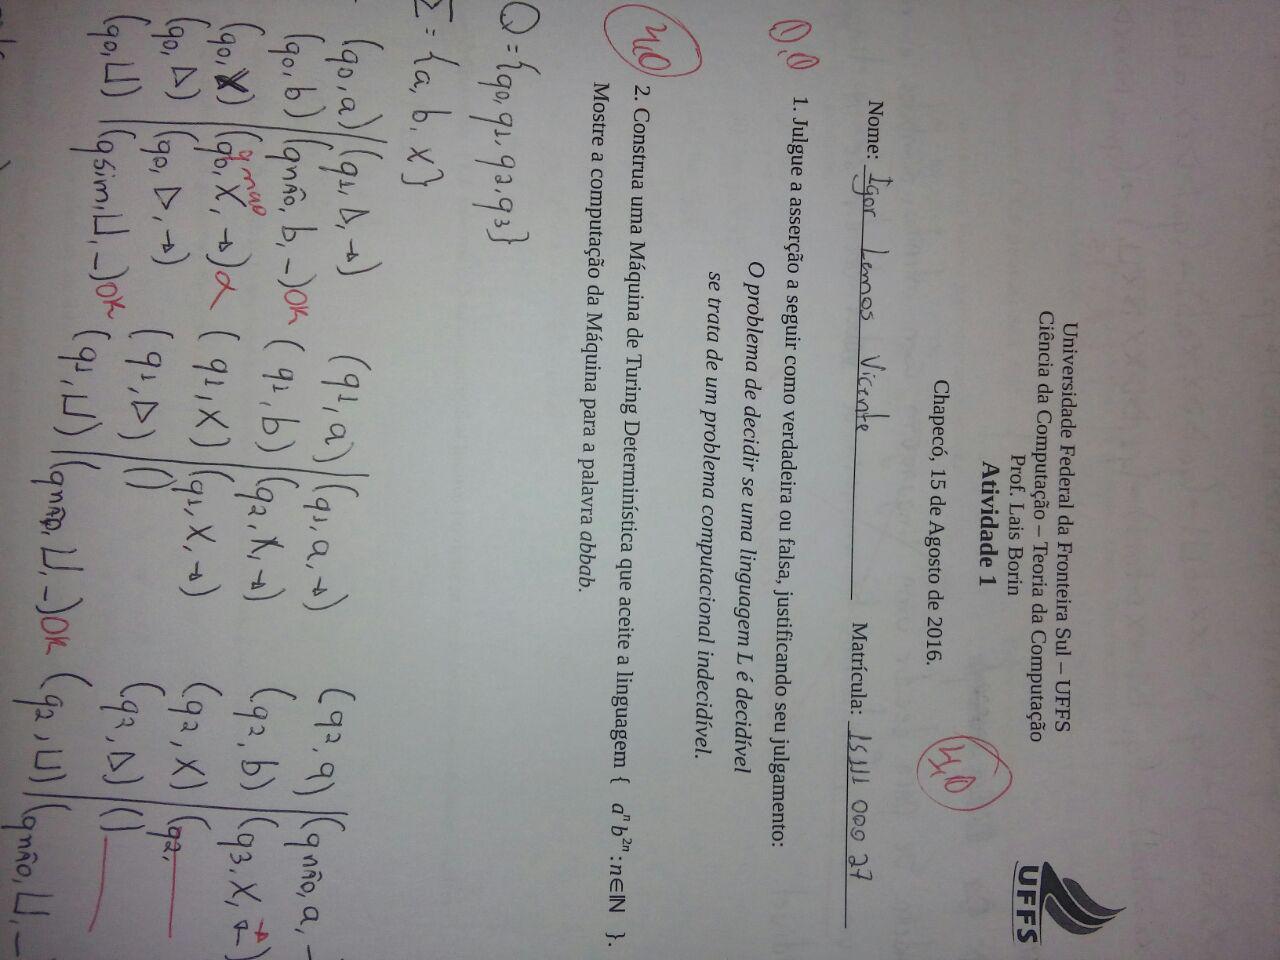 Universidade Federal da Fronteira Sul – UFFS
Ciência da Computação – Teoria da Computação
Prof. Lais Borin
Atividade 1
UFFS
4,0
Chapecó, 15 de Agosto de 2016.
Nome: Igor Lemos Vicente Matrícula: 1511100027
0,0
1. Julgue a asserção a seguir como verdadeira ou falsa, justificando seu julgamento:
O problema de decidir se uma linguagem L é decidível
se trata de um problema computacional indecidível.
4,0
2. Construa uma Máquina de Turing Determinística que aceite a linguagem { aⁿb²ⁿ : n∈ℕ }.
Mostre a computação da Máquina para a palavra abbab.
Q = {q0, q1, q2, q3}
Σ = {a, b, X}
(q0, a) | (q1, ▷, →) (q1, a) | (q1, a, →) (q2, a) | (qNÃO, a, –
(q0, b) | (qNÃO, b, –) OK (q1, b) | (q2, X, →) (q2, b) | (q3, X, →)
q nao
(q0, X) | (q0, X, →) α (q1, X) | (q1, X, →) (q2, X) | (q2,
(q0, ▷) | (q0, ▷, →) (q1, ▷) | () (q2, ▷) | ()
(q0, ⊔) | (qsim, ⊔, –) OK (q1, ⊔) | (qNÃO, ⊔, –) OK (q2, ⊔) | (qNÃO, ⊔, –